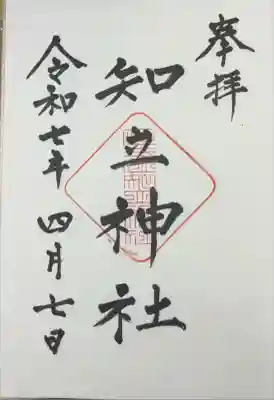 奉拝
知立神社
令和七年 四月七日